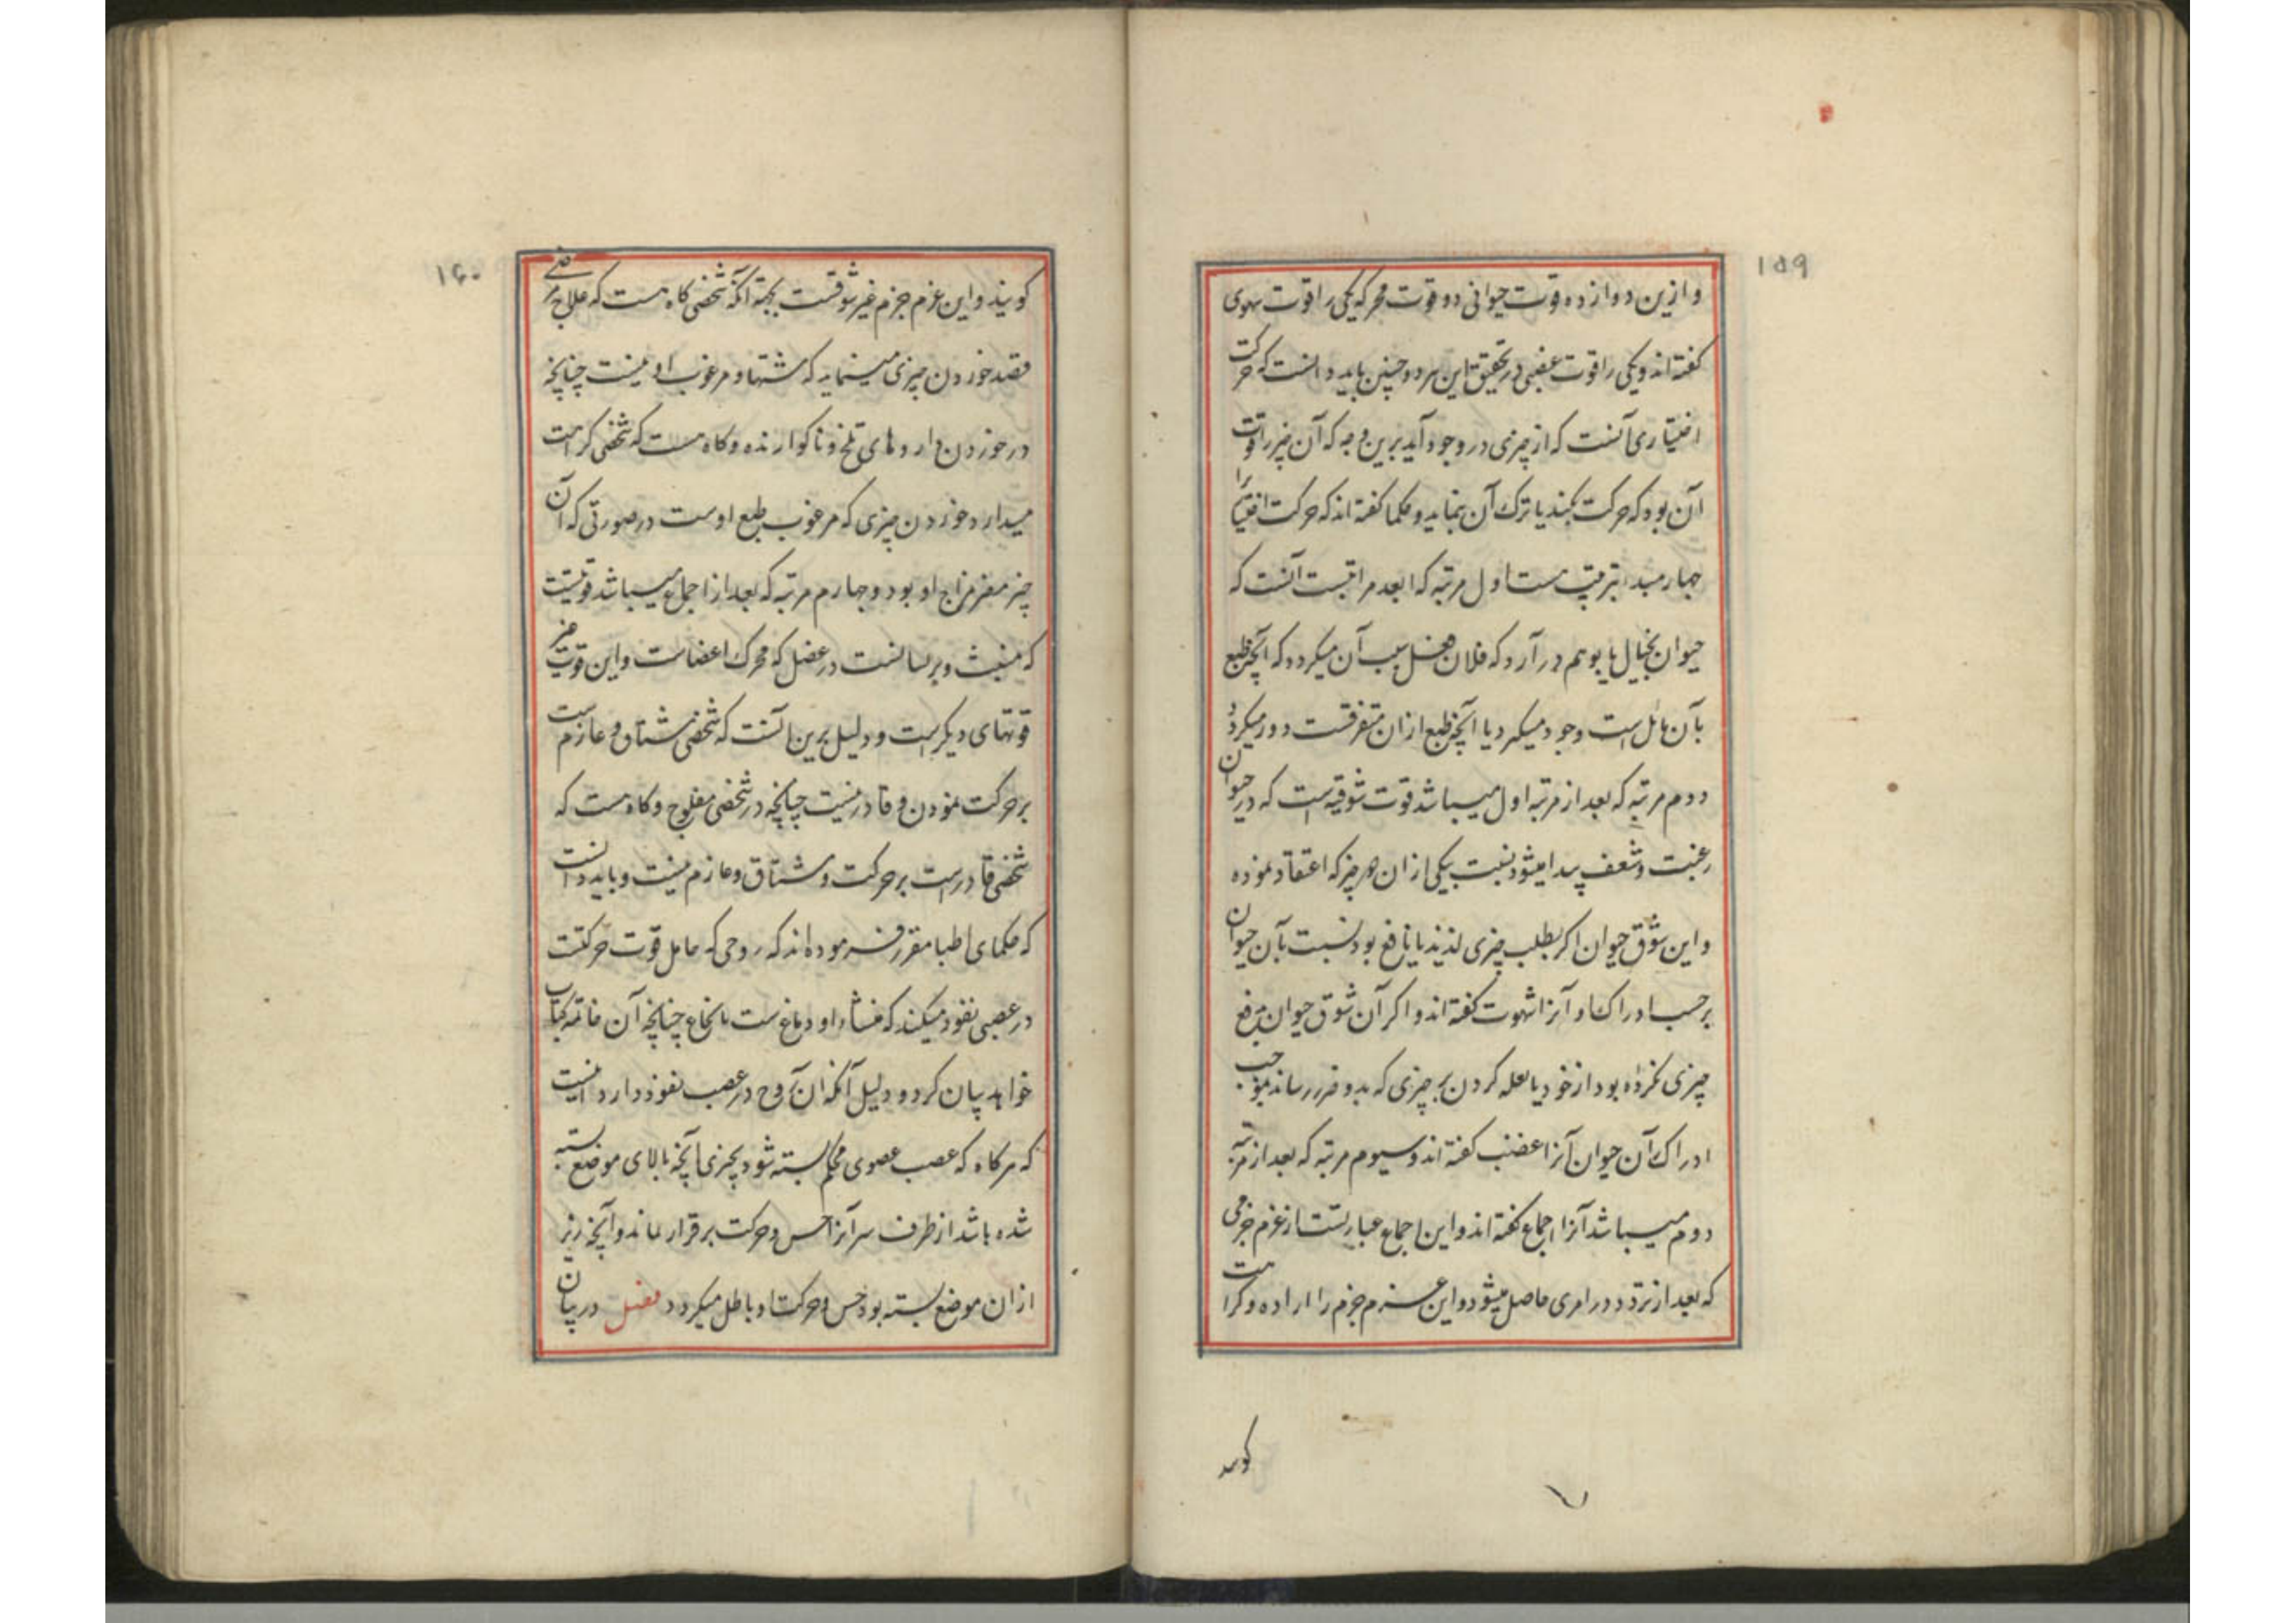 ۱۵۹
وازین دوازده قوت حیوانی دو قوت محرکه یکی را قوت شهوی
کفته اند و یکی را قوت غضبی در تحقیق این هر دو چنین باید دانست که حرکت
اختیاری آنست که از چیزی در وجود آید برین وجه که آن چیز را قوت
آن بود که حرکت بکند یا ترک آن بنماید و حکما کفته اند که حرکت اختیاری
چهار مبدء بترتیب هست اول مرتبه که ابعد مراتبست آنست که
حیوان بخیال یا بوهم در آرد که فلان فعل سبب آن میکردد که آنچه طبع
بآن مائل است وجود میکیرد یا آنچه طبع ازان متنفرقست دور میکردد
دوم مرتبه که بعد از مرتبه اول میباشد قوت شوقیه است که در حیوان
رغبت و شعف پیدا میشود نسبت بیکی ازان هر چیز که اعتقاد نموده
و این شوق حیوان اکر بطلب چیزی لذیذ یا نافع بود نسبت بآن حیوان
برحسب ادراک او آنرا شهوت کفته اند و اکر آن شوق حیوان بدفع
چیزی مکروه بود از خود یا بعله کردن بر چیزی که بدو ضرر رساند بموجب
ادراک آن حیوان آنرا غضب کفته اند و سیوم مرتبه که بعد از مرتبه
دوم میباشد آنرا اجماع کفته اند و این اجماع عبارتست از عزم جزمی
که بعد از تردد در امری حاصل میشود و این عزم جزم را اراده و کراهت
کویند
۱۶۰
کویند و این عزم جزم غیر شوقست بجهة آنکه شخصی کاه هست که علاج مرضی
قصد خوردن چیزی مینماید که مشتها و مرغوب او نیست چنانچه
در خوردن داروهای تلخ و ناکوارنده و کاه هست که شخصی کراهت
میدارد خوردن چیزی که مرغوب طبع اوست در صورتی که آن
چیز مضر مزاج او بود و چهارم مرتبه که بعد از اجماع میباشد قوتیست
که منبث و پریشانست در عضل که محرک اعضاست و این قوت غیر
قوتهای دیکرست و دلیل برین آنست که شخصی مشتاق و عازمست
بر حرکت نمودن و قادر نیست چنانچه در شخصی مفلوج و کاه هست که
شخصی قادرست بر حرکت و مشتاق و عازم نیست و باید دانست
که حکمای اطبا مقرر فرموده اند که روحی که حامل قوت حرکتست
در عصبی نفوذ میکند که منشاء او دماغ ست یا نخاع چنانچه آن خاتمه کتاب
خواهد بیان کرد و دلیل آنکه آن روح در عصب نفوذ دارد اینست
که هرکاه که عصب عضوی محکم بسته شود بچیزی آنچه بالای موضع بسته
شده باشد از طرف سر آنرا حس و حرکت برقرار ماند و آنچه زیر
ازان موضع بسته بود حس و حرکت او باطل میکردد فصل در بیان